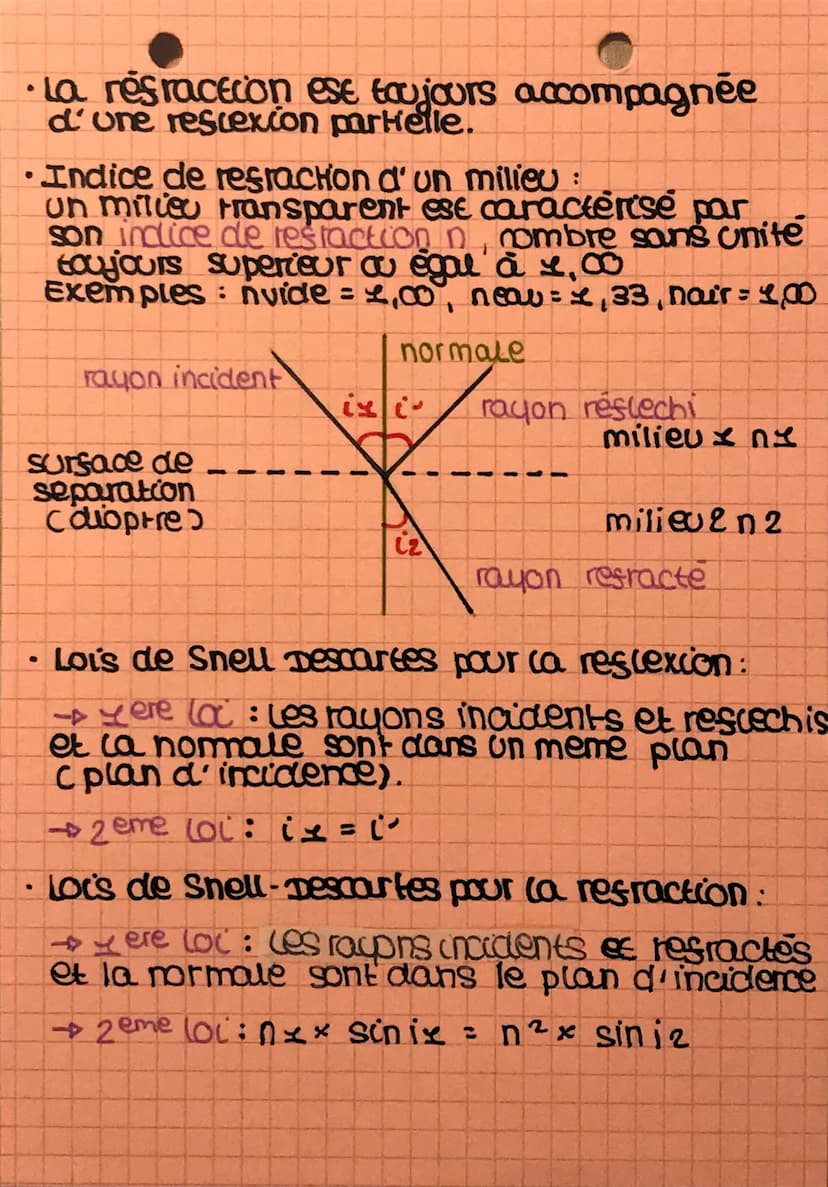 · La réfraction est toujours accompagnée
d'une reflexion partielle.
· Indice de refraction d'un milieu :
un milieu transparent est caractérisé par
son indice de refraction n, nombre sans unité
toujours superieur ou égal à 1,00
Exemples : nvide = 1,00, neau = 1,33, nair = 1,00
normale
rayon incident
i1 i'
rayon réflechi
milieu 1 n1
surface de
separation
(dioptre)
milieu 2 n2
i2
rayon refracté
· Lois de Snell Descartes pour la reflexion :
→ 1ere loi : Les rayons incidents et reflechis
et la normale sont dans un meme plan
(plan d'incidence).
→ 2eme loi : i1 = i'
· Lois de Snell-Descartes pour la refraction :
→ 1ere loi : Les rayons incidents et refractés
et la normale sont dans le plan d'incidence
→ 2eme loi : n1 × sin i1 = n2 × sin i2